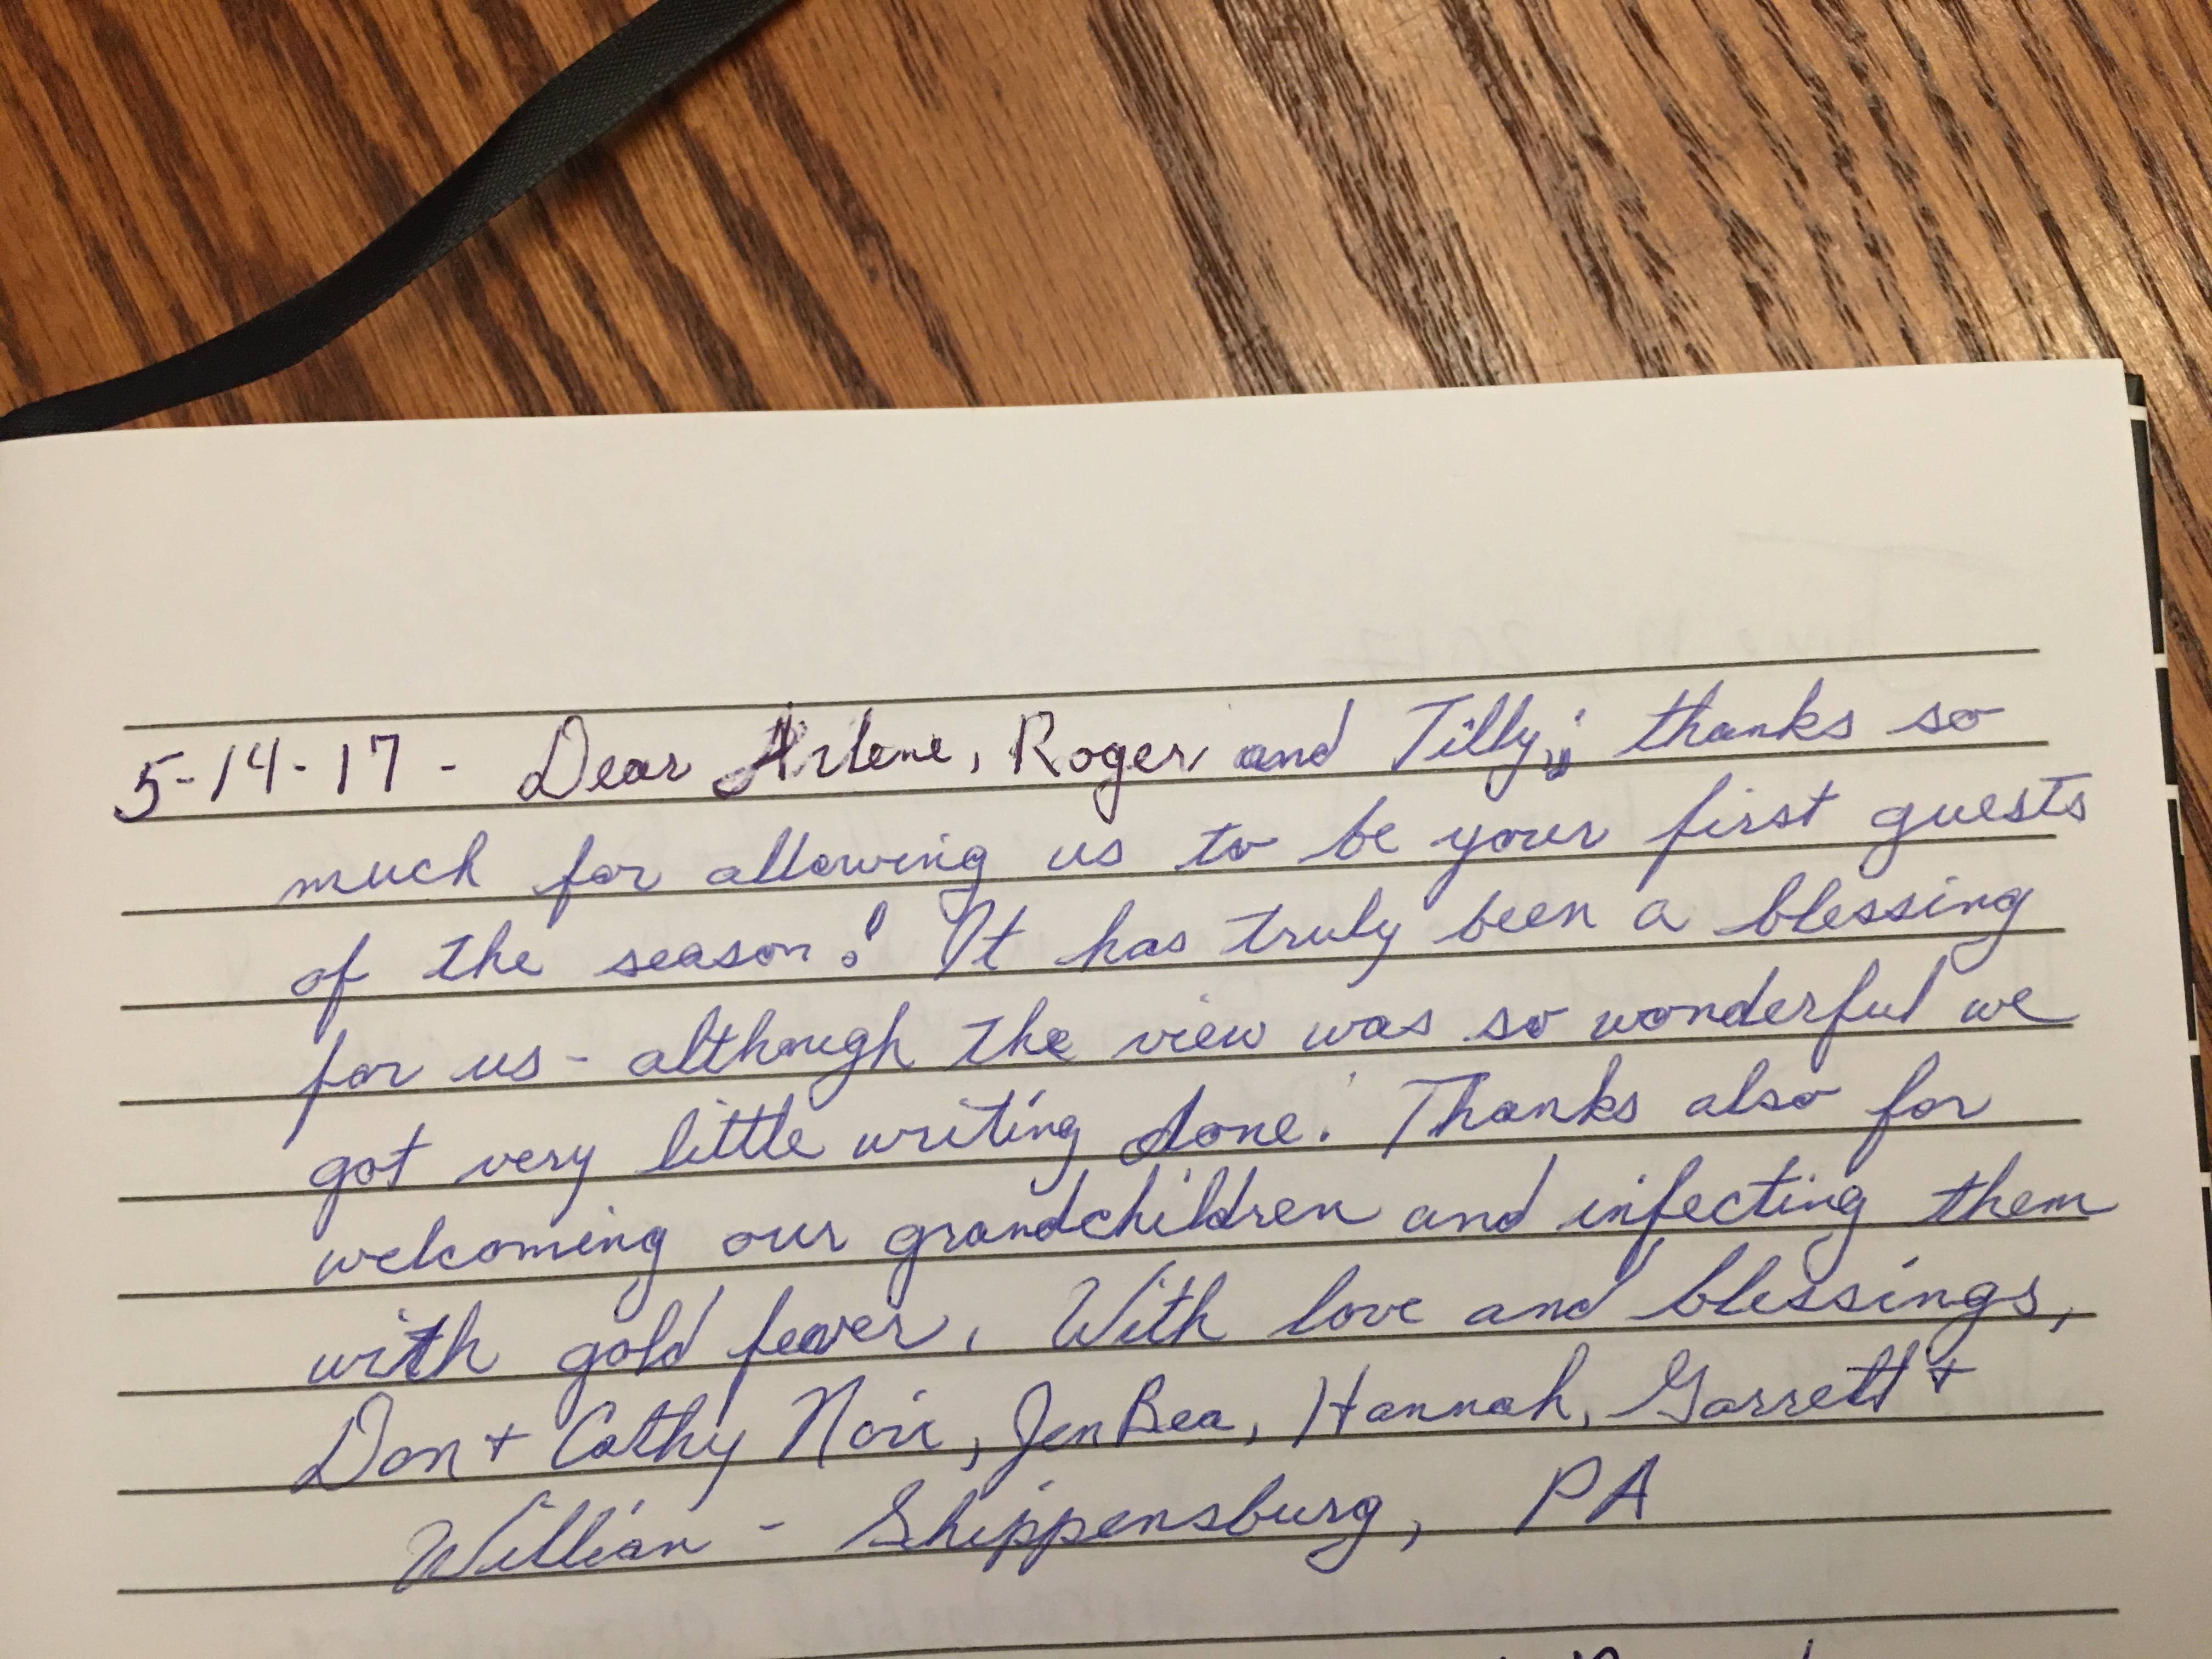 5-14-17 - Dear Arlene, Roger and Tilly; thanks so
much for allowing us to be your first guests
of the season! It has truly been a blessing
for us - although the view was so wonderful we
got very little writing done. Thanks also for
welcoming our grandchildren and infecting them
with gold fever. With love and blessings,
Don + Cathy Nori, Jen Bea, Hannah, Garrett +
Willian - Shippensburg, PA